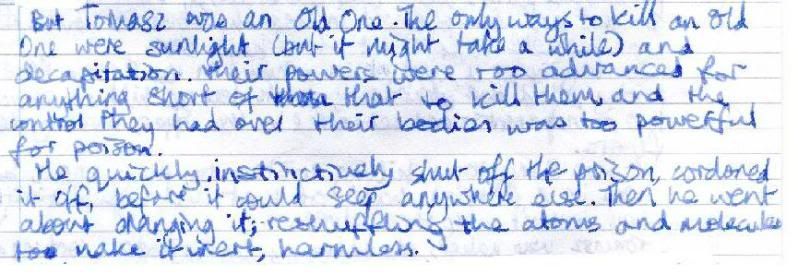 But Tomasz was an Old One. The only ways to kill an Old
One were sunlight (but it might take a while) and
decapitation. Their powers were too advanced for
anything short of that to kill them, and the
control they had over their bodies was too powerful
for poison.
He quickly, instinctively shut off the poison, cordoned
it off, before it could seep anywhere else. Then he went
about changing it; reshuffling the atoms and molecules
to make it inert, harmless.